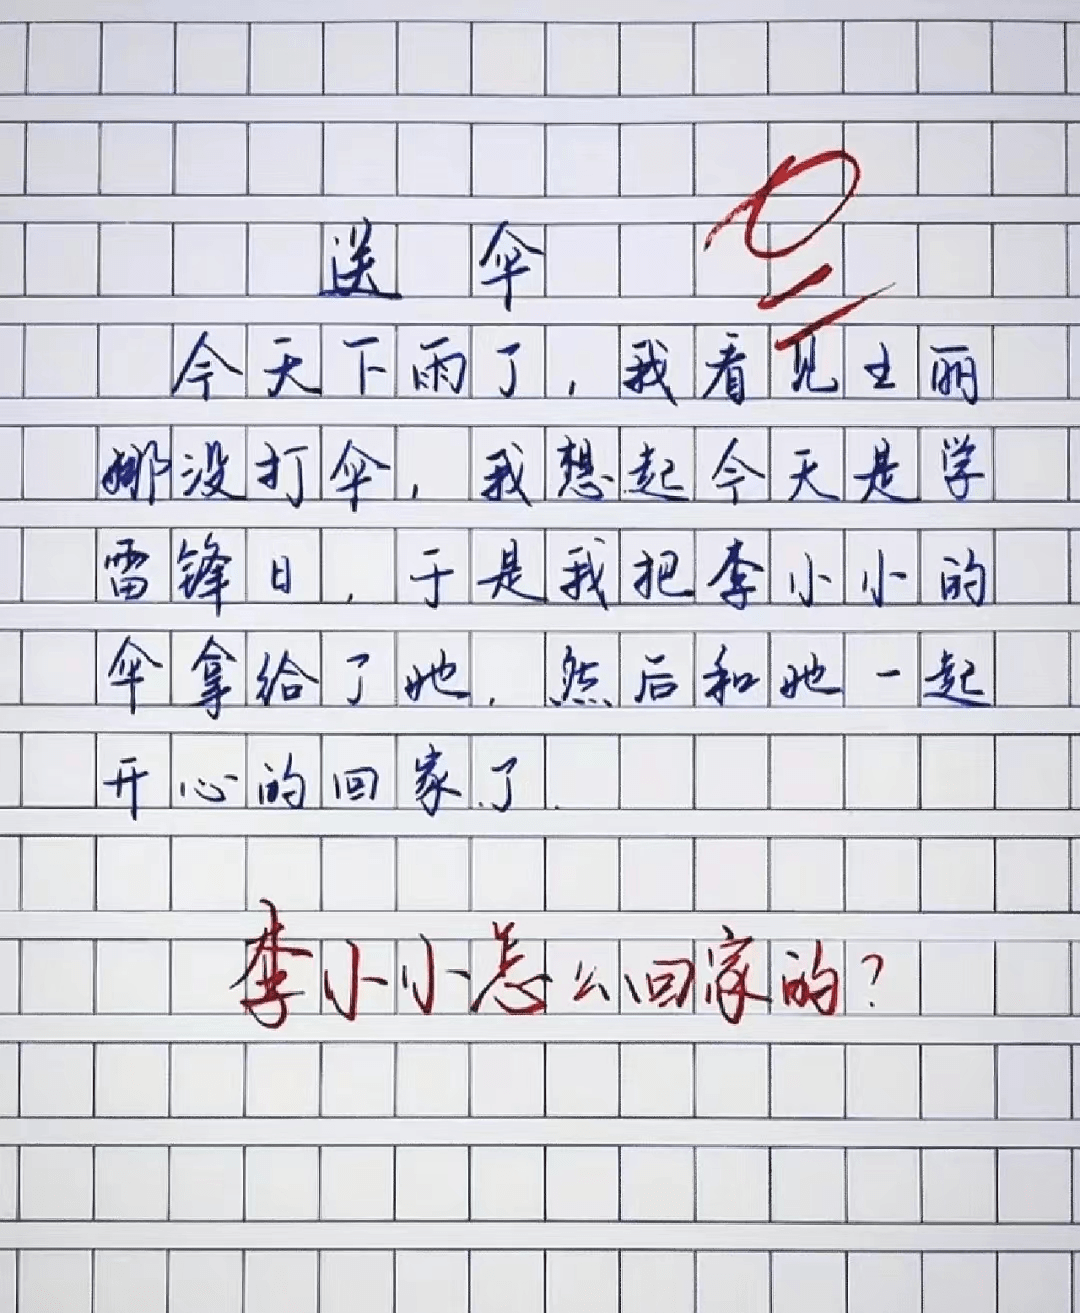 0
送伞
今天下雨了，我看见王丽
娜没打伞，我想起今天是学
雷锋日，于是我把李小小的
伞拿给了她，然后和她一起
开心的回家了。
李小小怎么回家的？